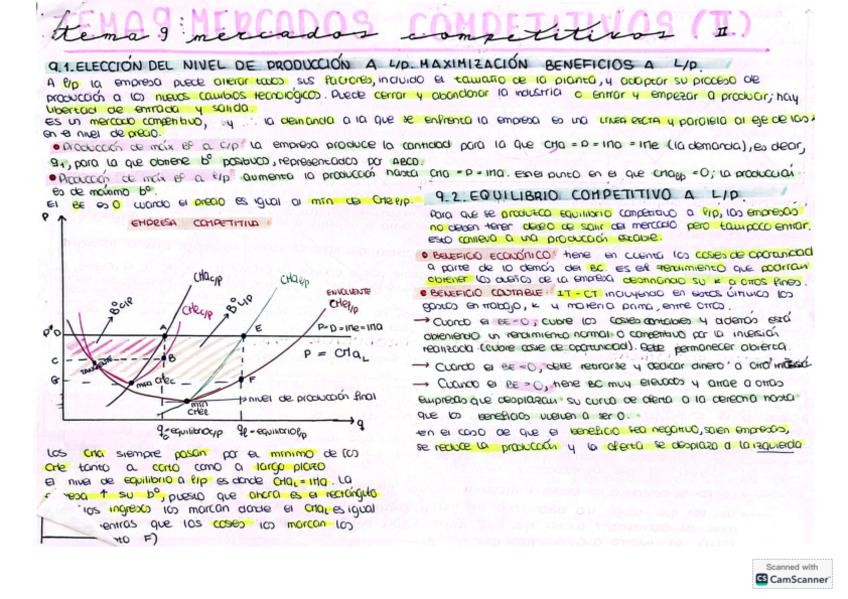 TEMA 9: MERCADOS COMPETITIVOS (II)
tema 9: mercados competitivos II
9.1. ELECCIÓN DEL NIVEL DE PRODUCCIÓN A L/P. MAXIMIZACIÓN BENEFICIOS A L/P.
A l/p la empresa puede alterar todos sus factores, incluido el tamaño de la planta, y adaptar su proceso de
producción a los nuevos cambios tecnológicos. Puede cerrar y abandonar la industria o entrar y empezar a producir; hay
libertad de entrada y salida.
Es un mercado competitivo, y la demanda a la que se enfrenta la empresa es una LÍNEA RECTA y paralela al eje de las
en el nivel de precio.
• Producción de máx Bº a c/p: la empresa produce la cantidad para la que CMa = P = IMa = IMe (la demanda), es decir,
q1, para la que obtiene bº positivos, representados por ABCD.
• Producción de máx Bº a l/p: aumenta la producción hasta CMa = P = IMa. Es el punto en el que = 0; la producción
es de máximo bº.
El BE es 0 cuando el precio es igual al mín de CMe l/p.
9.2. EQUILIBRIO COMPETITIVO A L/P.
Para que se produzca equilibrio competitivo a l/p, las empresas
no deben tener deseo de salir del mercado pero tampoco entrar.
Esto conlleva a una producción estable.
• BENEFICIO ECONÓMICO: tiene en cuenta los costes de oportunidad
a parte de lo demás del BC. Es el rendimiento que podrían
obtener los dueños de la empresa destinando su K a otros fines.
• BENEFICIO CONTABLE: IT - CT incluyendo en estos últimos los
gastos en trabajo, K y materia prima, entre otros.
→ Cuando el BE = 0, cubre los costes contables y además está
obteniendo un rendimiento normal o competitivo por la inversión
realizada (cubre coste de oportunidad). Debe permanecer abierta.
→ Cuando el BE < 0, debe retirarse y dedicar dinero a otro
→ Cuando el BE > 0, tiene BC muy elevados y atrae a otras
empresas que desplazan su curva de oferta a la derecha hasta
que los beneficios vuelven a ser 0.
en el caso de que el beneficio sea negativo, salen empresas,
se reduce la producción y la oferta se desplaza a la izquierda
EMPRESA COMPETITIVA
P
CMa c/p
CMa l/p
Bº c/p
Bº L/P
CMe c/p
ENVOLVENTE
CMe l/p
P*D
A
E
P=D=IMe=IMa
C
B
P = CMa L
G
F
mín CMe c
mín
CMe L
nivel de producción final
qc = equilibrio c/p
ql = equilibrio l/p
q
Los CMa siempre pasan por el mínimo de los
CMe tanto a corto como a largo plazo
El nivel de equilibrio a l/p es donde CMa L = IMa. La
↑ su bº, puesto que ahora es el rectángulo
los ingresos los marcan donde el CMa L es igual
entras que los costes los marcan los
to F)
Scanned with
CS CamScanner